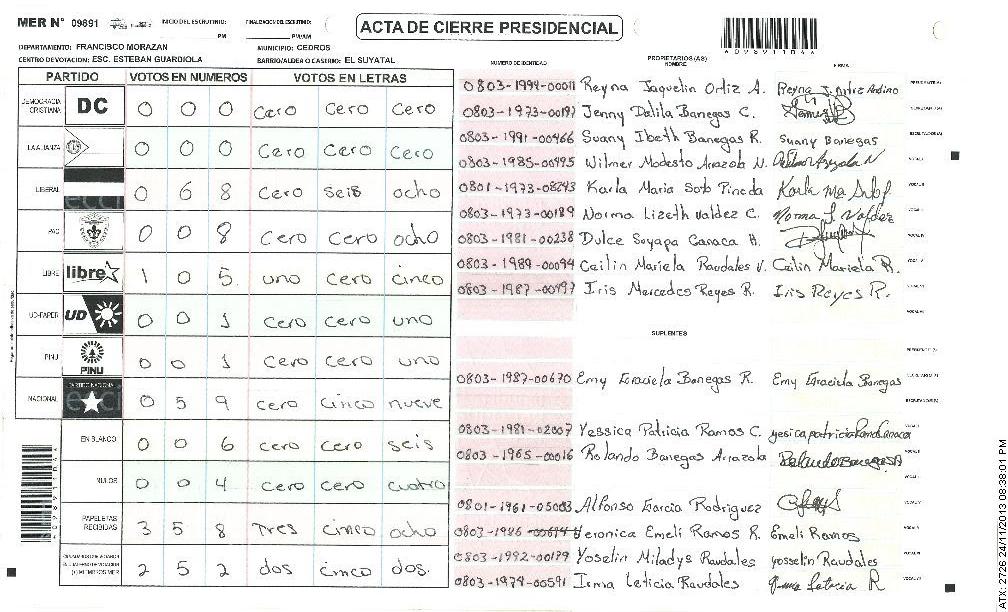 MER N° 09891
INICIO DEL ESCRUTINIO: PM
FINALIZACION DEL ESCRUTINIO: PM/AM
ACTA DE CIERRE PRESIDENCIAL
DEPARTAMENTO: FRANCISCO MORAZAN
MUNICIPIO: CEDROS
CENTRO DE VOTACION: ESC. ESTEBAN GUARDIOLA
BARRIO/ALDEA O CASERIO: EL SUYATAL
PARTIDO VOTOS EN NUMEROS VOTOS EN LETRAS
DEMOCRACIA CRISTIANA DC 0 0 0 cero cero cero
LA ALIANZA 0 0 0 cero cero cero
LIBERAL 0 6 8 cero seis ocho
PAC 0 0 8 cero cero ocho
LIBRE libre 1 0 5 uno cero cinco
UD-FAPER UD 0 0 1 cero cero uno
PINU PINU 0 0 1 cero cero uno
NACIONAL PARTIDO NACIONAL 0 5 9 cero cinco nueve
EN BLANCO 0 0 6 cero cero seis
NULOS 0 0 4 cero cero cuatro
PAPELETAS RECIBIDAS 3 5 8 Tres cinco ocho
2 5 2 dos cinco dos.
NUMERO DE IDENTIDAD PROPIETARIOS(AS) NOMBRE FIRMA
0803-1994-00011 Reyna Jaquelin Ortiz A. Reyna J. Ortiz Andino
0803-1973-00197 Jenny Dalila Banegas C.
0803-1991-00466 Suany Ibeth Banegas R. Suany Banegas
0803-1985-00495 Wilmer Modesto Arrazola N.
0801-1973-08243 Karla Maria Soto Pineda Karla Ma Soto P.
0803-1973-00189 Norma Lizeth Valdez C. Norma L Valdez
0803-1981-00238 Dulce Suyapa Canaca H.
0803-1989-00094 Ceilin Mariela Raudales V. Ceilin Mariela R.
0803-1987-00497 Iris Mercedes Reyes R. Iris Reyes R.
SUPLENTES
0803-1987-00670 Emy Graciela Banegas R. Emy Graciela Banegas
0803-1981-02007 Yessica Patricia Ramos C. yesica patricia Ramos Canaca
0803-1965-00016 Rolando Banegas Arrazola
0801-1961-05003 Alfonso Garcia Rodriguez
0803-1986-00614 Veronica Emeli Ramos R. Emeli Ramos
0803-1992-00189 Yoselin Miladys Raudales yosselin Raudales
0803-1979-00591 Irma Leticia Raudales Irma Leticia R
ATX-2726 24/11/2013 08:38:01 PM